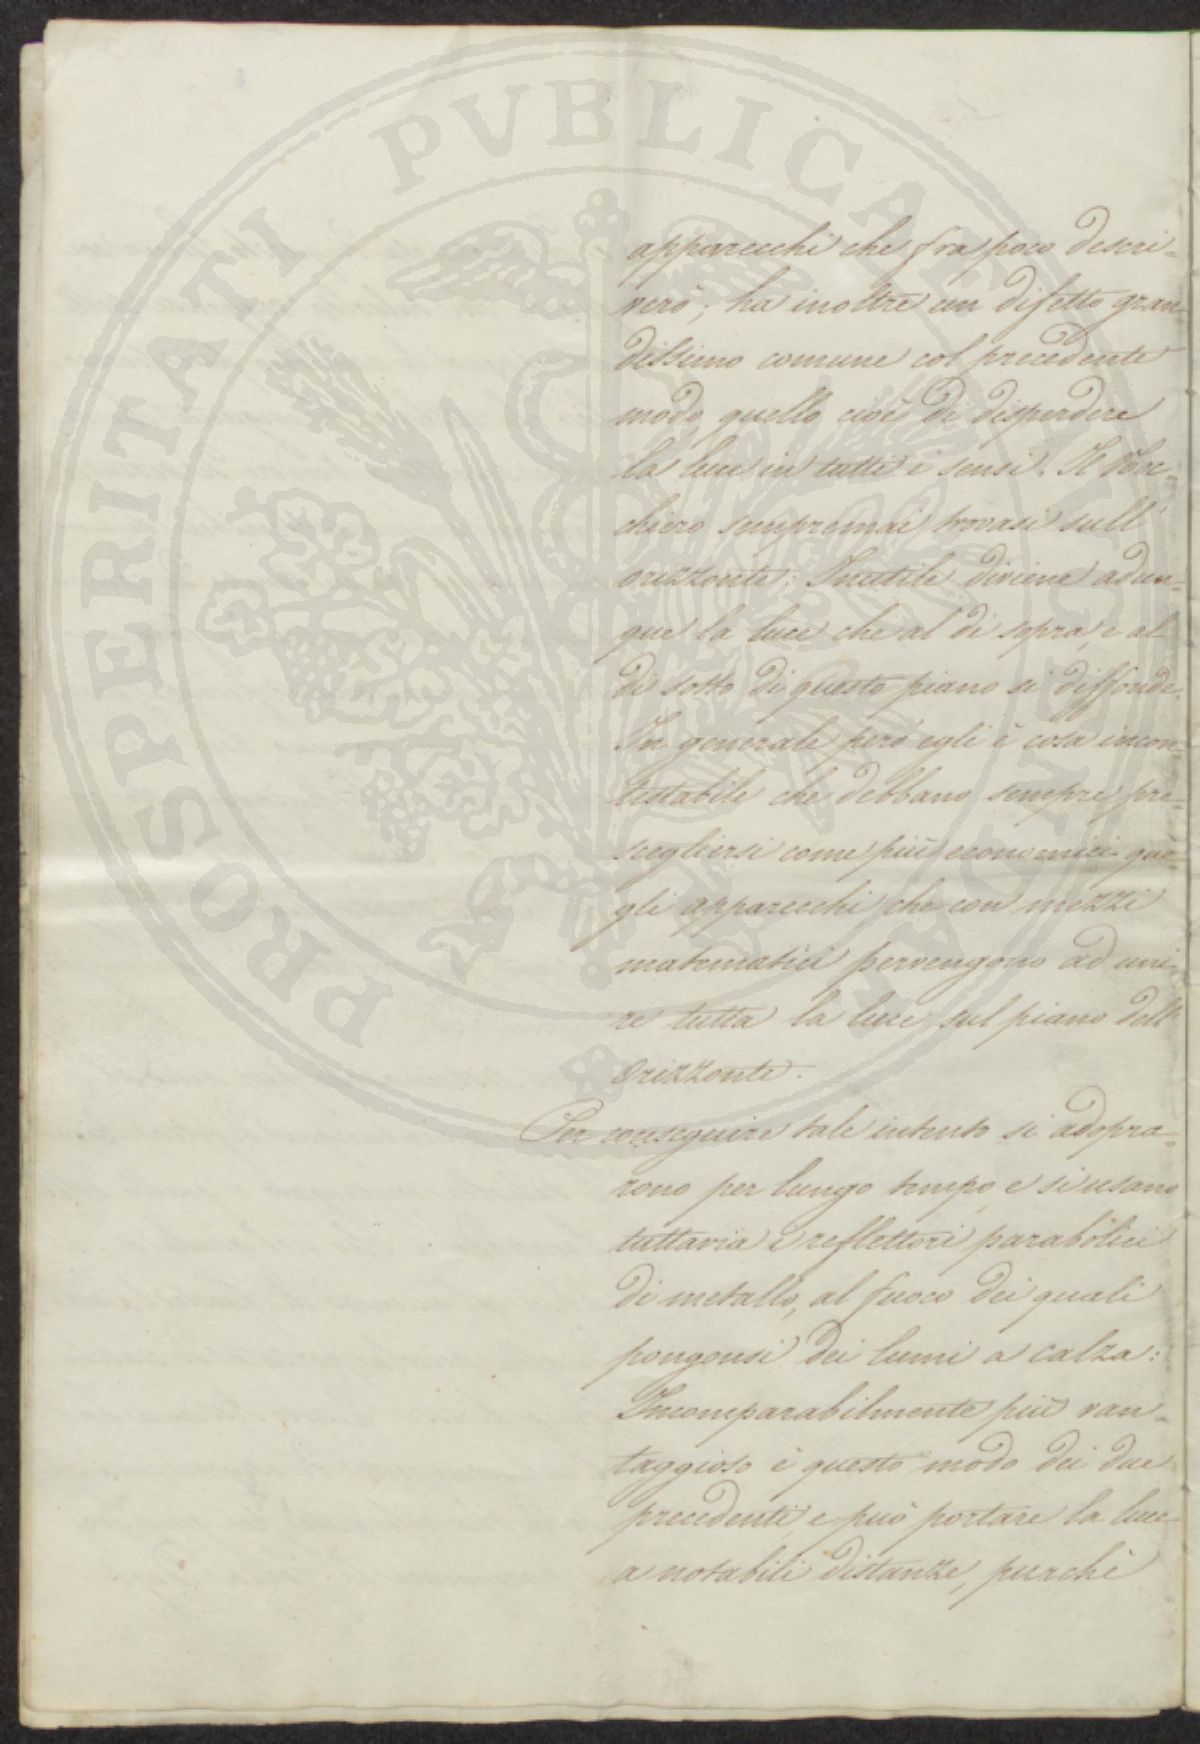 PROSPERITATI PVBLICAE AVGENDAE
apparecchi che fra poco descri=
verò; ha inoltre un difetto gran=
dissimo comune col precedente
modo quello cioè di disperdere
la luce in tutti i sensi. Il Noc=
chiero sempremai trovasi sull'
orizzonte: Inutile diviene adun=
que la luce che al di sopra, e al
di sotto di questo piano si diffonde.
In generale però egli è cosa incon=
testabile che debbano sempre pre=
scegliersi come più economici que=
gli apparecchi che con mezzi
matematici pervengono ad uni=
re tutta la luce sul piano dell'
Orizzonte.
Per conseguire tale intento si adopra=
rono per lungo tempo, e si usano
tuttavia i reflettori parabolici
di metallo, al fuoco dei quali
pongonsi dei lumi a calza:
Incomparabilmente più van=
taggioso è questo modo dei due
precedenti, e può portare la luce
a notabili distanze, purchè